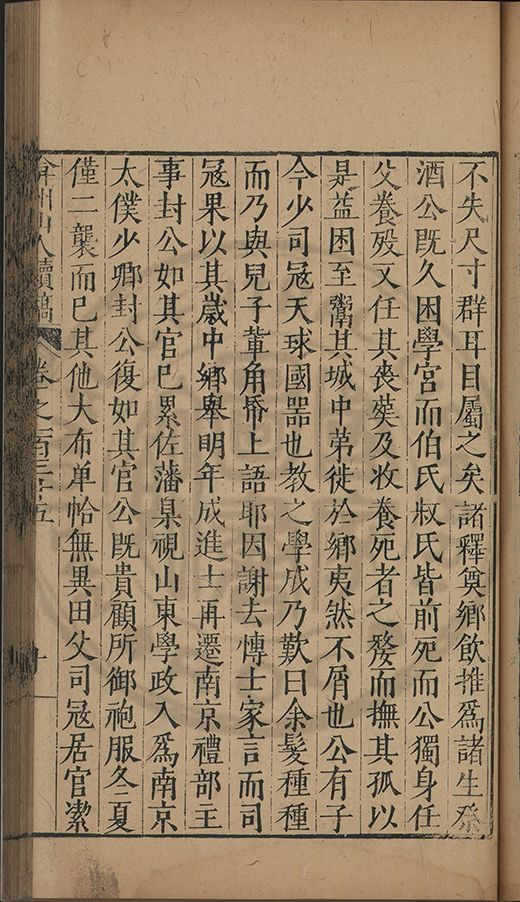 不失尺寸群耳目屬之矣諸釋奠鄉飲推爲諸生祭
酒公既久困學宮而伯氏叔氏皆前死而公獨身任
父養歿又任其喪葬及收養死者之嫠而撫其孤以
是益困至鬻其城中第徙於鄉夷然不屑也公有子
今少司冦天球國器也教之學成乃歎曰余髮種種
而乃與兒子軰角帋上語耶因謝去愽士家言而司
冦果以其歲中鄉舉明年成進士再遷南京禮部主
事封公如其官已累佐藩臬視山東學政入爲南京
太僕少卿封公復如其官公既貴顧所御袍服冬夏
僅二襲而已其他大布单袷無異田父司冦居官潔
弇州山人續稿 卷之一百三十五 十